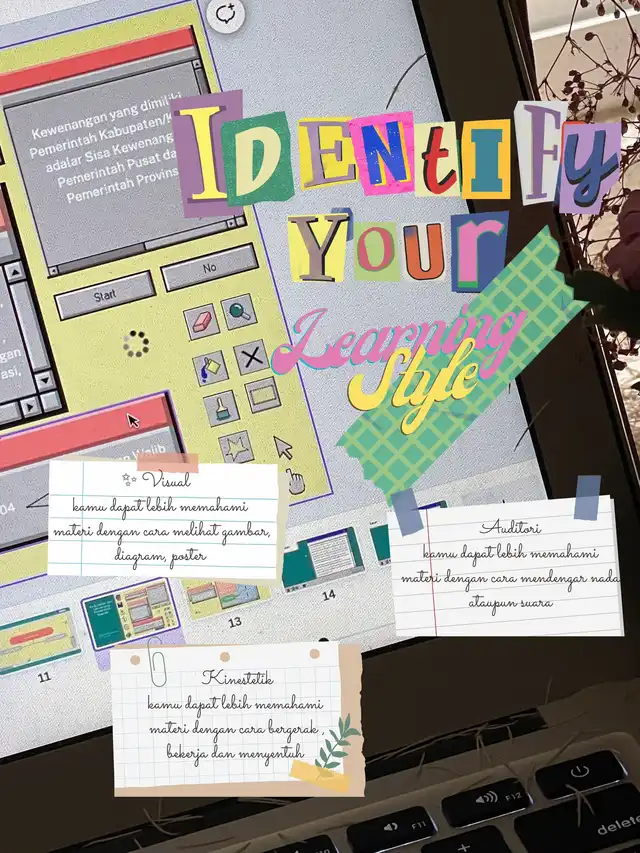 Kewenangan yang dimiliki
Pemerintah Kabupaten/K
adalar Sisa Kewenang
Pemerintah Pusat da
Pemerintah Provins
IDENtIFy
Your
Start
No
Learning
Style
gan
asi,
Wajib
04
Visual
kamu dapat lebih memahami
materi dengan cara melihat gambar,
diagram, poster
Auditori
kamu dapat lebih memahami
materi dengan cara mendengar nada
ataupun suara
11
13
14
Kinestetik
kamu dapat lebih memahami
materi dengan cara bergerak ,
bekerja dan menyentuh
F11
F12
delete